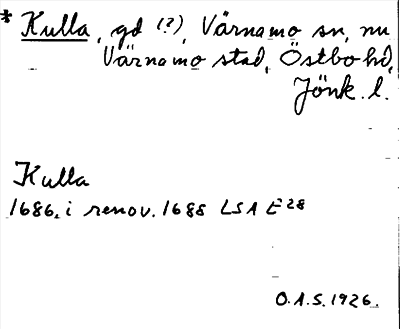 * Kulla, gd (?), Värnamo sn, nu
Värnamo stad, Östbo hd,
Jönk. l.
Kulla
1686. i renov. 1688 LSA E28
O.A.S. 1926.